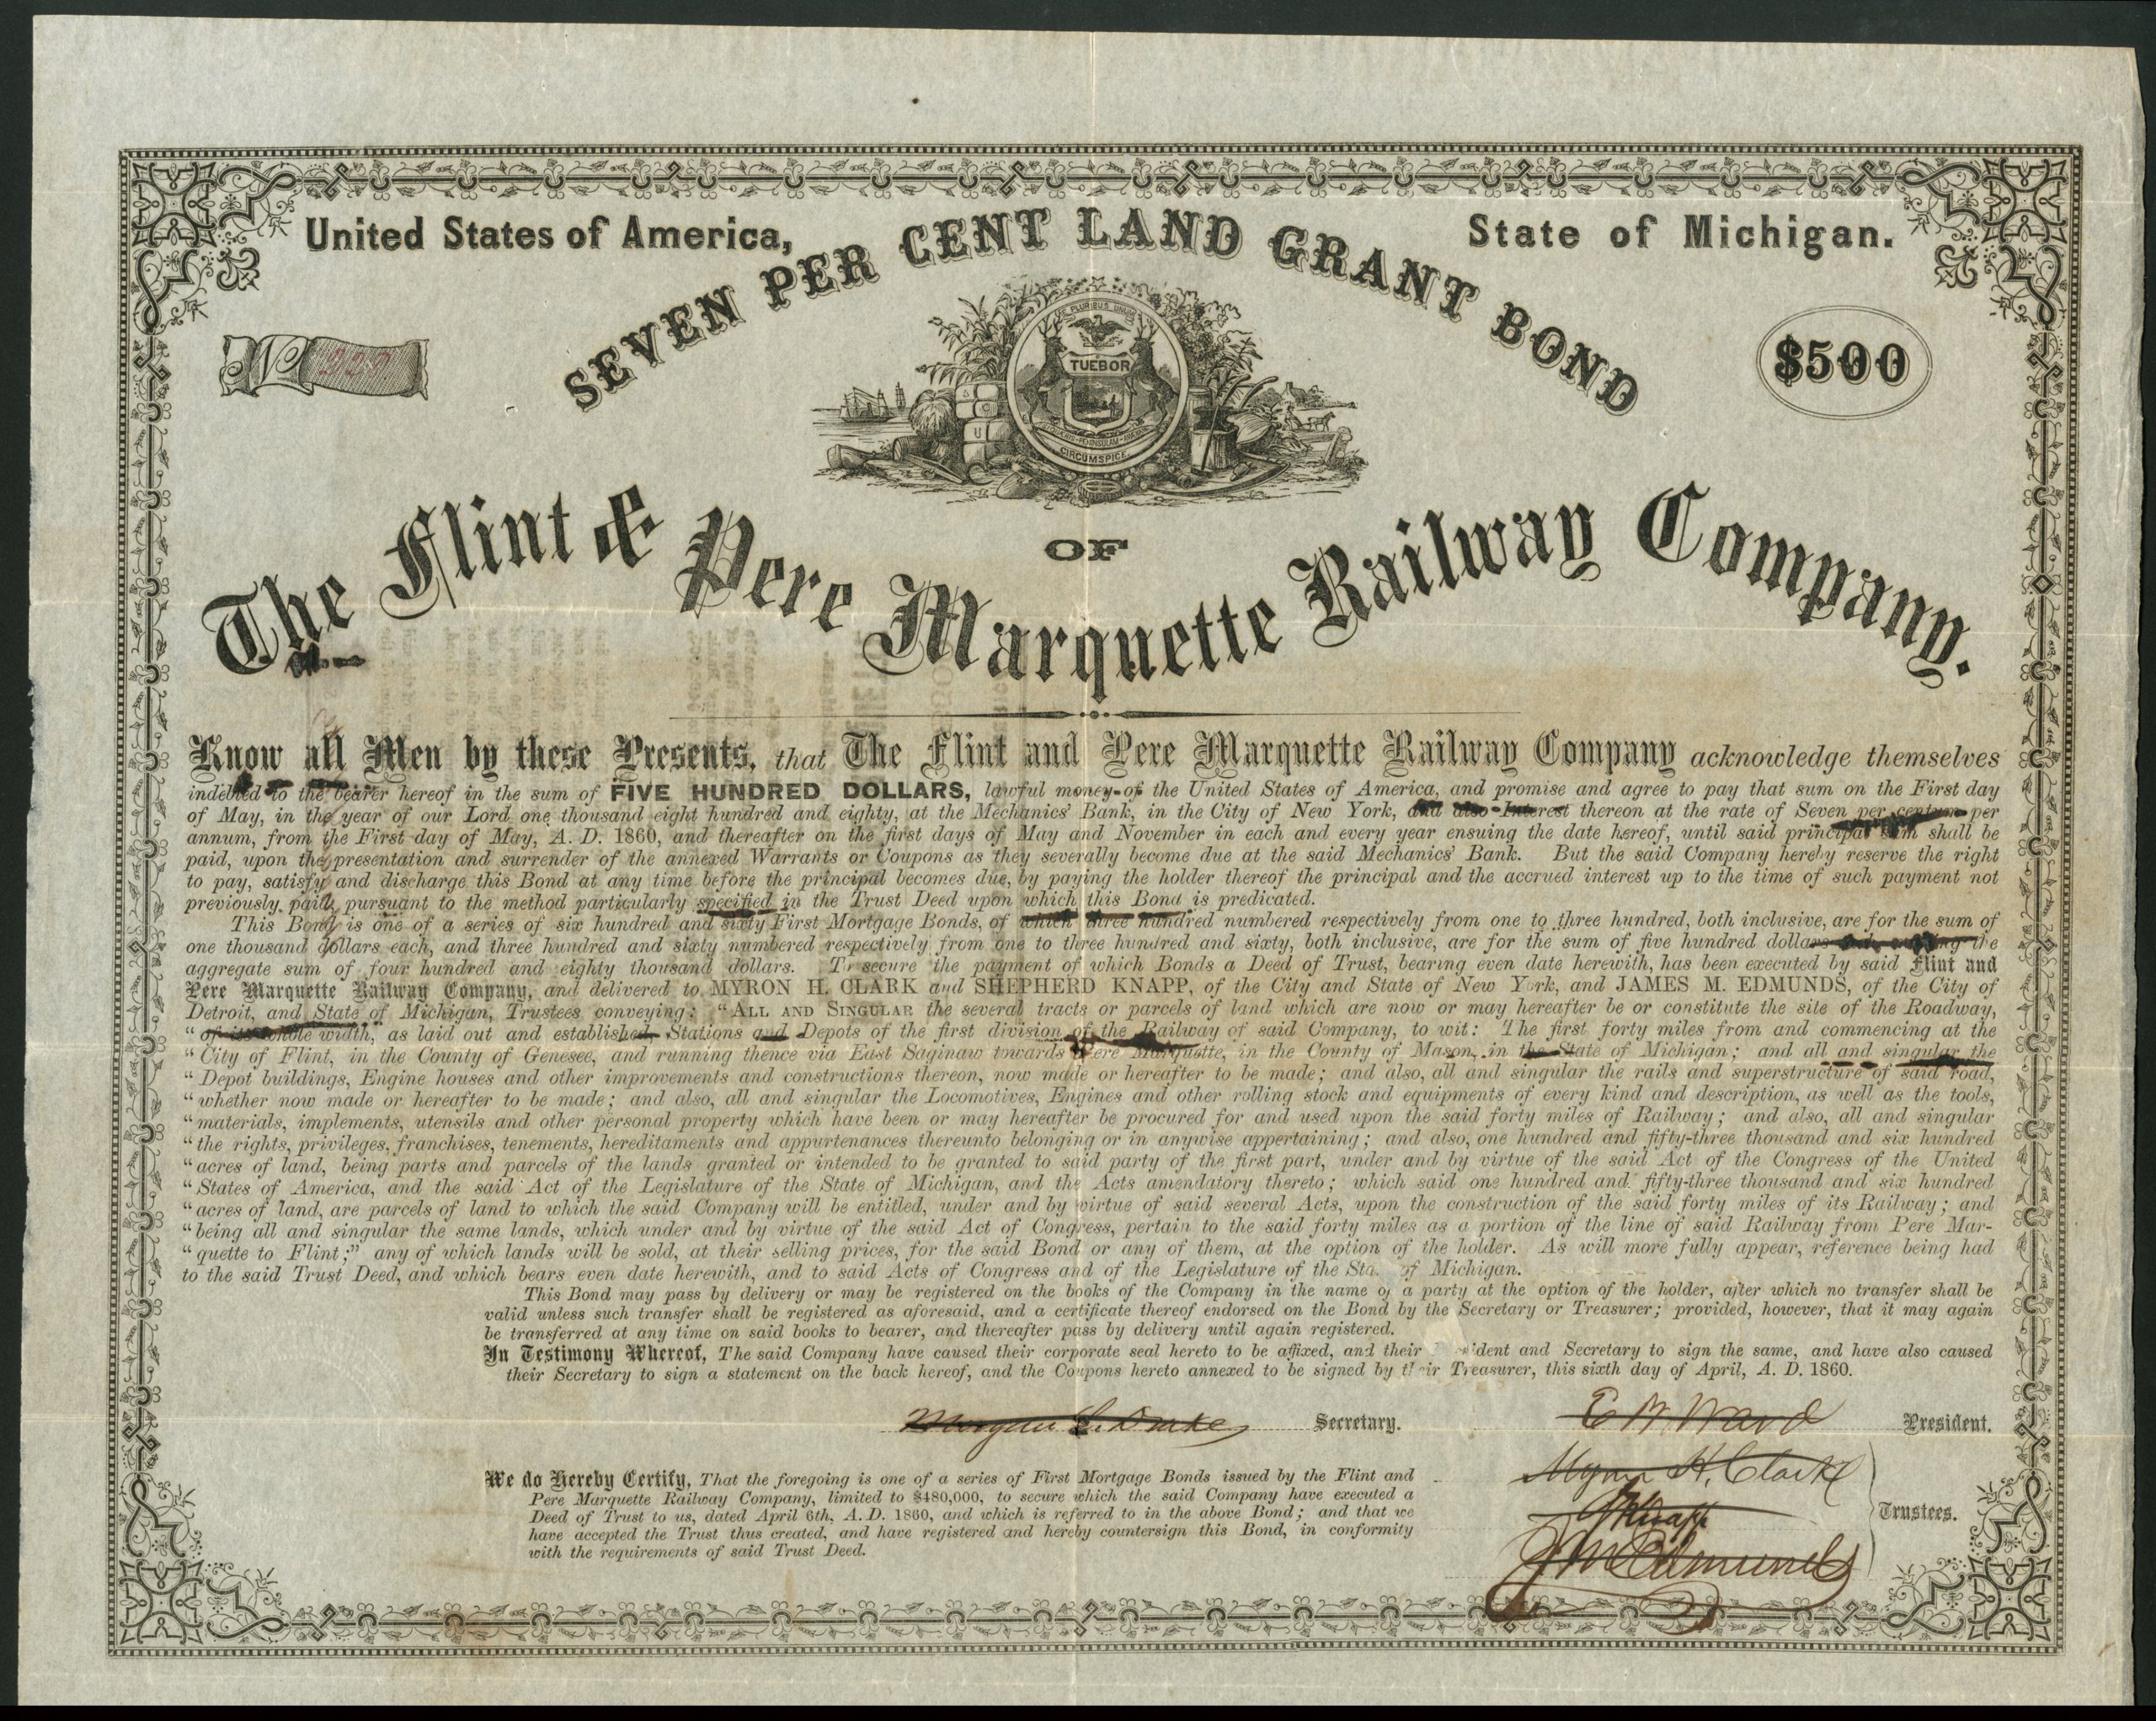 United States of America,
State of Michigan.
SEVEN PER CENT LAND GRANT BOND
No
$500
E PLURIBUS UNUM
TUEBOR
CIRCUMSPICE
OF
The Flint & Pere Marquette Railway Company.
Know all Men by these Presents, that The Flint and Pere Marquette Railway Company acknowledge themselves
indebted to the bearer hereof in the sum of FIVE HUNDRED DOLLARS, lawful money of the United States of America, and promise and agree to pay that sum on the First day
of May, in the year of our Lord one thousand eight hundred and eighty, at the Mechanics' Bank, in the City of New York, and also Interest thereon at the rate of Seven per centum per
annum, from the First day of May, A. D. 1860, and thereafter on the first days of May and November in each and every year ensuing the date hereof, until said principal sum shall be
paid, upon the presentation and surrender of the annexed Warrants or Coupons as they severally become due at the said Mechanics' Bank. But the said Company hereby reserve the right
to pay, satisfy and discharge this Bond at any time before the principal becomes due, by paying the holder thereof the principal and the accrued interest up to the time of such payment not
previously paid, pursuant to the method particularly specified in the Trust Deed upon which this Bond is predicated.
This Bond is one of a series of six hundred and sixty First Mortgage Bonds, of which three hundred numbered respectively from one to three hundred, both inclusive, are for the sum of
one thousand dollars each, and three hundred and sixty numbered respectively from one to three hundred and sixty, both inclusive, are for the sum of five hundred dollars the
aggregate sum of four hundred and eighty thousand dollars. To secure the payment of which Bonds a Deed of Trust, bearing even date herewith, has been executed by said Flint and
Pere Marquette Railway Company, and delivered to MYRON H. CLARK and SHEPHERD KNAPP, of the City and State of New York, and JAMES M. EDMUNDS, of the City of
Detroit, and State of Michigan, Trustees conveying: "ALL AND SINGULAR the several tracts or parcels of land which are now or may hereafter be or constitute the site of the Roadway,
"of its whole width, as laid out and established, Stations and Depots of the first division of the Railway of said Company, to wit: The first forty miles from and commencing at the
"City of Flint, in the County of Genesee, and running thence via East Saginaw towards Pere Marquette, in the County of Mason, in the State of Michigan; and all and singular the
"Depot buildings, Engine houses and other improvements and constructions thereon, now made or hereafter to be made; and also, all and singular the rails and superstructure of said road,
"whether now made or hereafter to be made; and also, all and singular the Locomotives, Engines and other rolling stock and equipments of every kind and description, as well as the tools,
"materials, implements, utensils and other personal property which have been or may hereafter be procured for and used upon the said forty miles of Railway; and also, all and singular
"the rights, privileges, franchises, tenements, hereditaments and appurtenances thereunto belonging or in anywise appertaining; and also, one hundred and fifty-three thousand and six hundred
"acres of land, being parts and parcels of the lands granted or intended to be granted to said party of the first part, under and by virtue of the said Act of the Congress of the United
"States of America, and the said Act of the Legislature of the State of Michigan, and the Acts amendatory thereto; which said one hundred and fifty-three thousand and six hundred
"acres of land, are parcels of land to which the said Company will be entitled, under and by virtue of said several Acts, upon the construction of the said forty miles of its Railway; and
"being all and singular the same lands, which under and by virtue of the said Act of Congress, pertain to the said forty miles as a portion of the line of said Railway from Pere Mar-
"quette to Flint;" any of which lands will be sold, at their selling prices, for the said Bond or any of them, at the option of the holder. As will more fully appear, reference being had
to the said Trust Deed, and which bears even date herewith, and to said Acts of Congress and of the Legislature of the Sta of Michigan.
This Bond may pass by delivery or may be registered on the books of the Company in the name of a party at the option of the holder, after which no transfer shall be
valid unless such transfer shall be registered as aforesaid, and a certificate thereof endorsed on the Bond by the Secretary or Treasurer; provided, however, that it may again
be transferred at any time on said books to bearer, and thereafter pass by delivery until again registered.
In Testimony Whereof, The said Company have caused their corporate seal hereto to be affixed, and their President and Secretary to sign the same, and have also caused
their Secretary to sign a statement on the back hereof, and the Coupons hereto annexed to be signed by their Treasurer, this sixth day of April, A. D. 1860.
Morgan L. Drake Secretary.
E B Ward President.
We do Hereby Certify, That the foregoing is one of a series of First Mortgage Bonds issued by the Flint and
Pere Marquette Railway Company, limited to $480,000, to secure which the said Company have executed a
Deed of Trust to us, dated April 6th, A. D. 1860, and which is referred to in the above Bond; and that we
have accepted the Trust thus created, and have registered and hereby countersign this Bond, in conformity
with the requirements of said Trust Deed.
Myron H. Clark
S Knapp
J M Edmunds
Trustees.